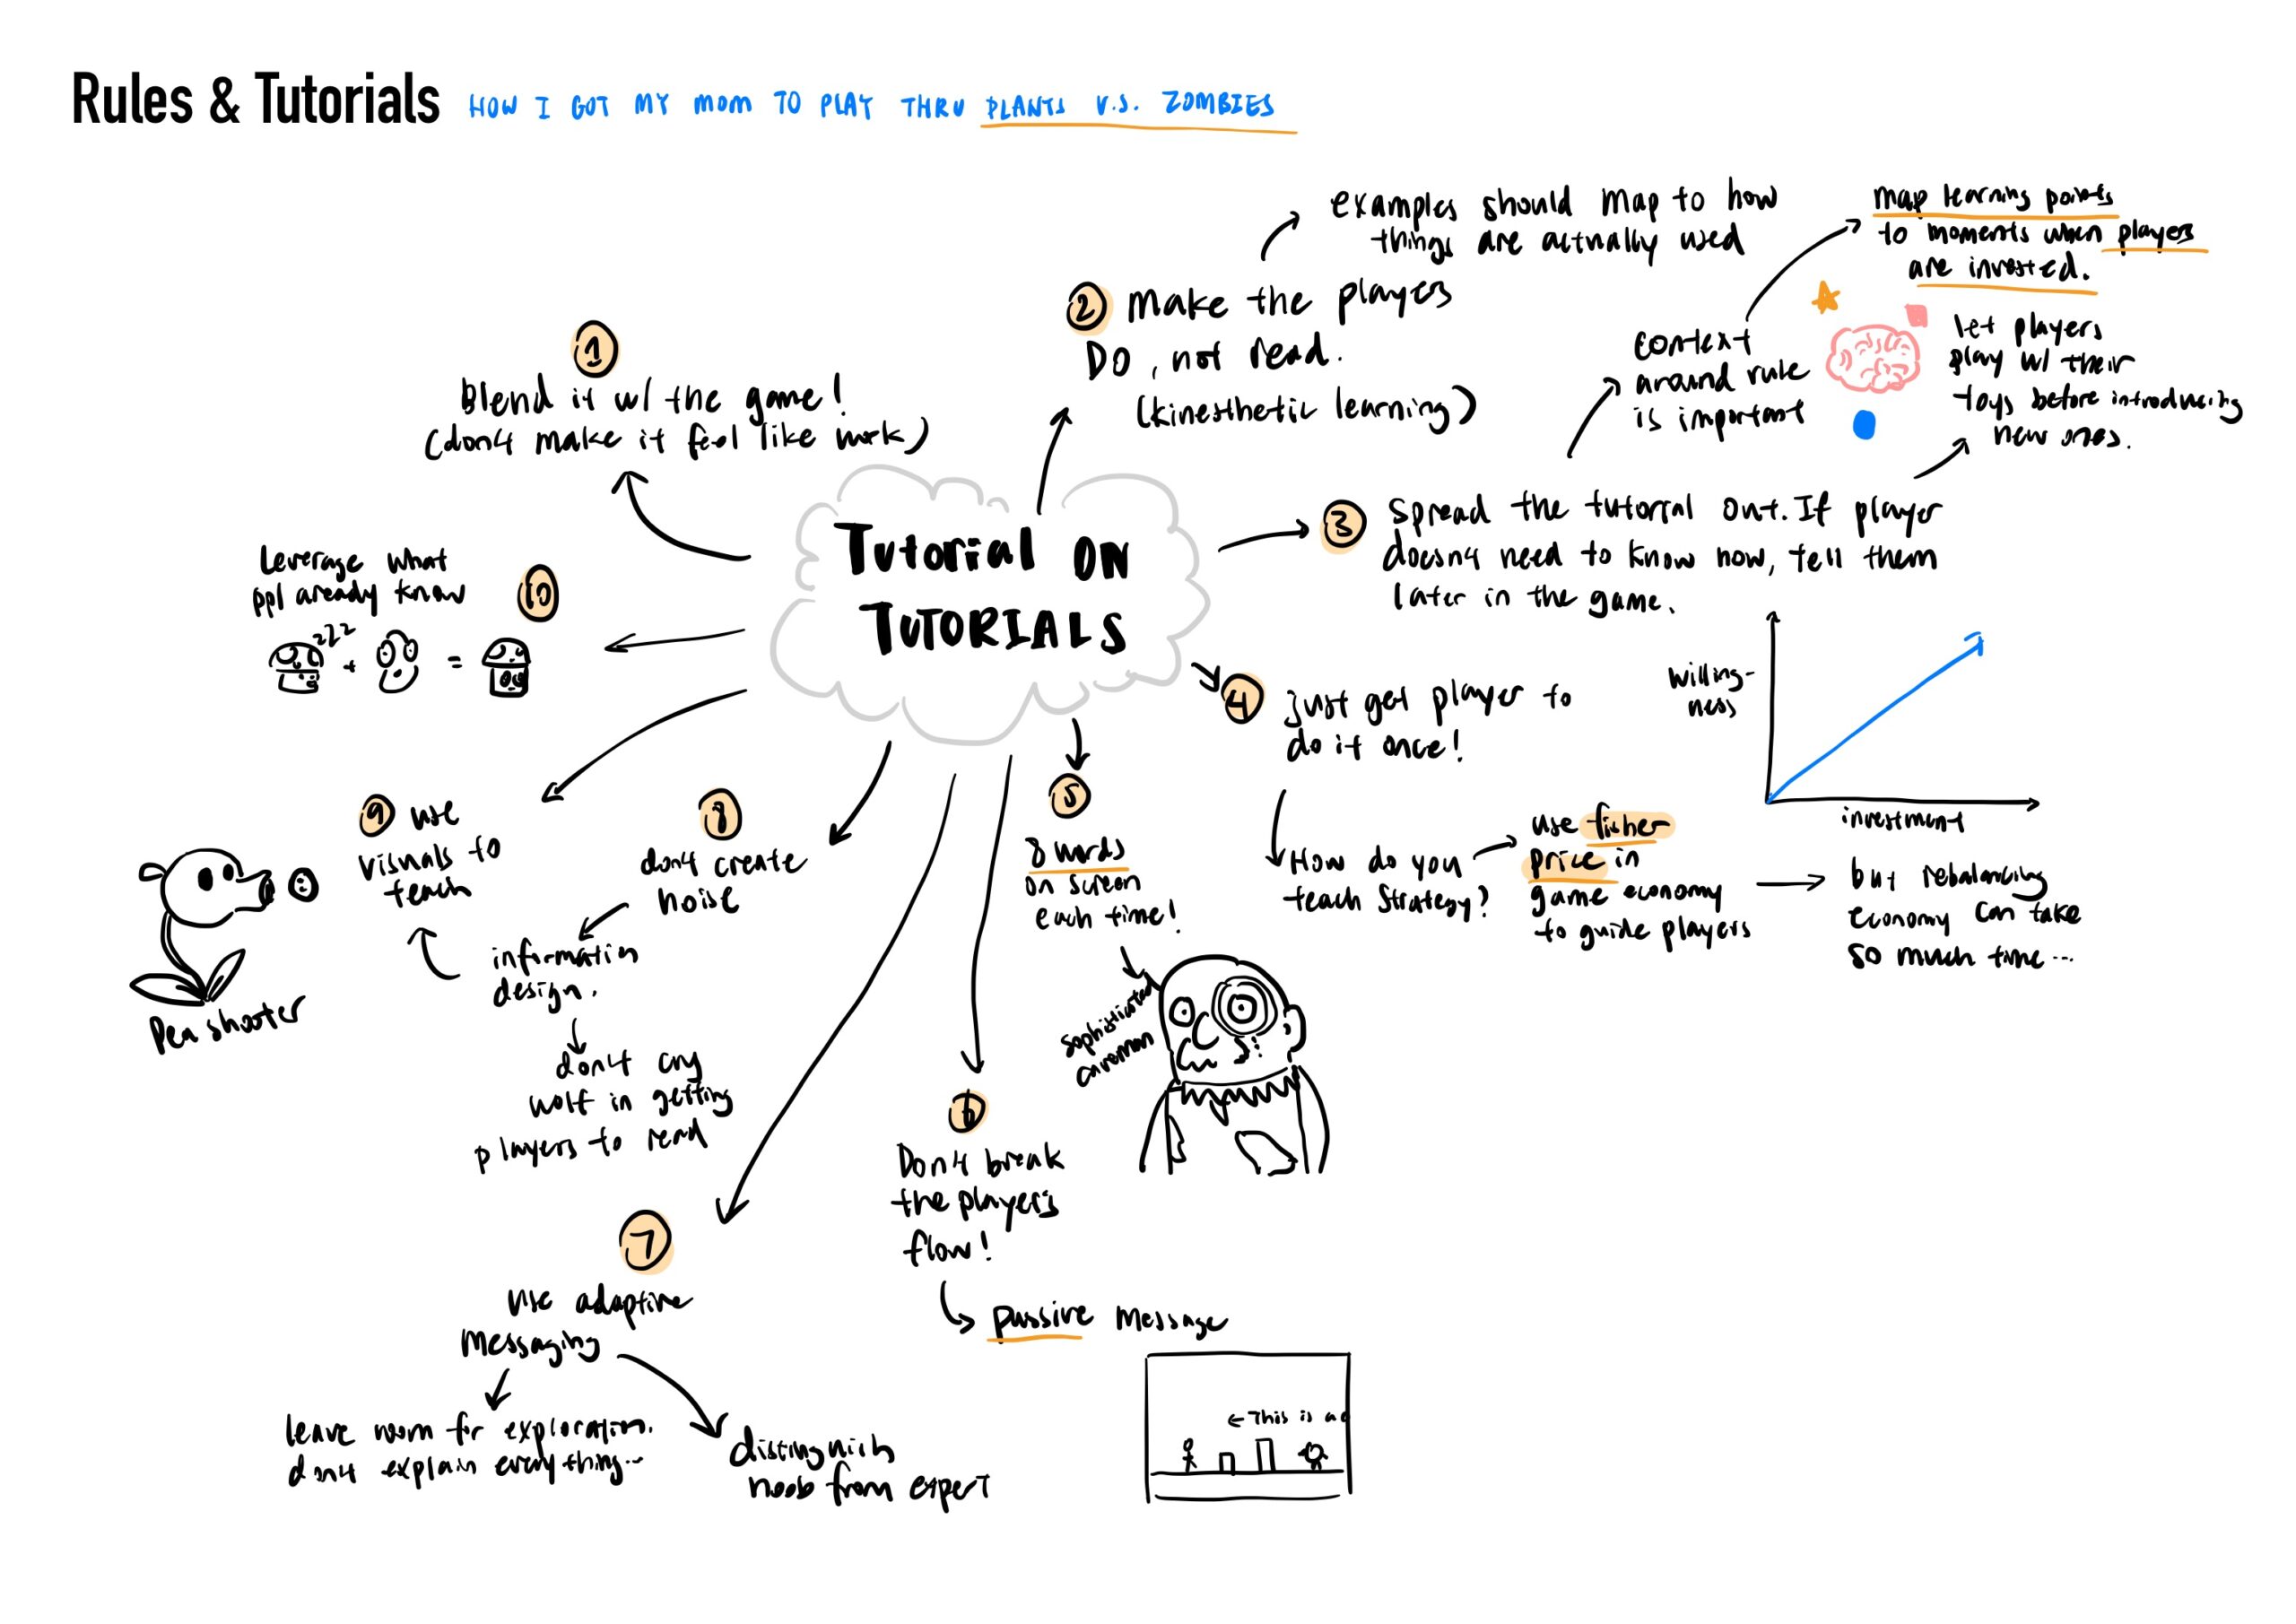 Rules & Tutorials HOW I GOT MY MOM TO PLAY THRU PLANTS V.S. ZOMBIES
Tutorial ON
TUTORIALS
1
Blend it w/ the game!
(don't make it feel like work)
2 Make the players
DO, not read.
(kinesthetic learning)
examples should map to how
things are actually used
3 Spread the tutorial out. If player
doesn't need to know now, tell them
later in the game.
context
around rule
is important
map learning points
to moments when players
are invested.
let players
play w/ their
toys before introducing
new ones.
willing-
ness
investment
4 just get player to
do it once!
How do you
teach strategy?
use fisher
price in
game economy
to guide players
but rebalancing
economy can take
so much time...
5
8 words
on screen
each time!
sophisticated
caveman
6
Don't break
the player's
flow!
passive message
← This is a
7
use adaptive
messaging
leave room for exploration.
don't explain everything...
distinguish
noob from expert
8
don't create
noise
information
design.
don't cry
wolf in getting
players to read
9 use
visuals to
teach
Pea shooter
10
leverage what
ppl aready know
zzz
+ =